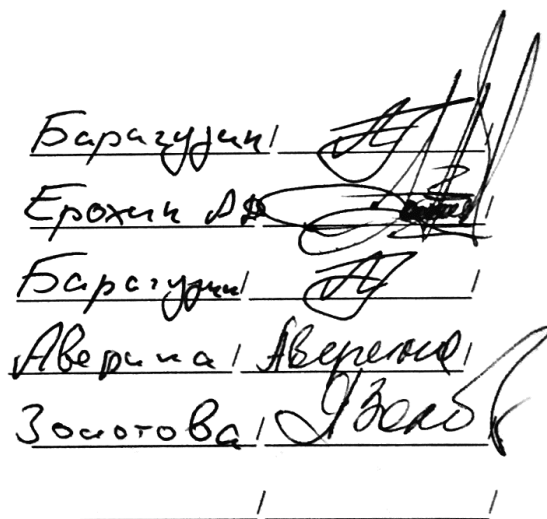 Барагузин /
Ерохин АД /
Барагузин / /
Аверина / Аверина /
Золотова /
/ /